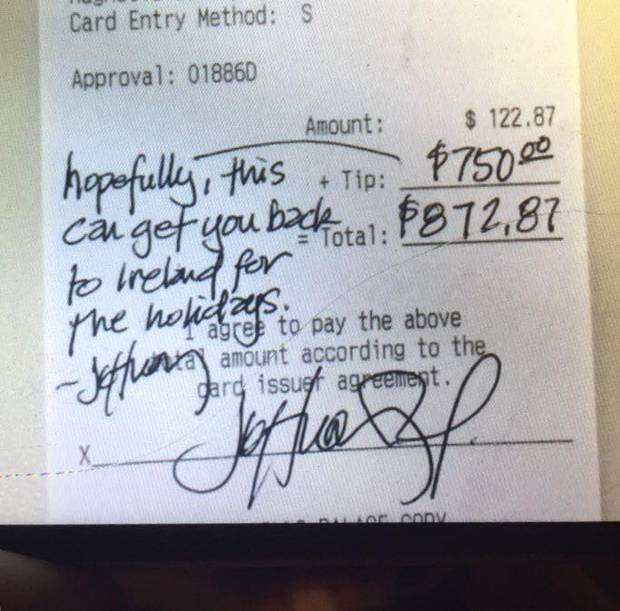 Card Entry Method: S
Approval: 01886D
Amount: $ 122.87
+ Tip: $750.00
= Total: $872.87
hopefully, this
can get you back
to Ireland for
the holidays.
I agree to pay the above
total amount according to the
card issuer agreement.
X
COPY